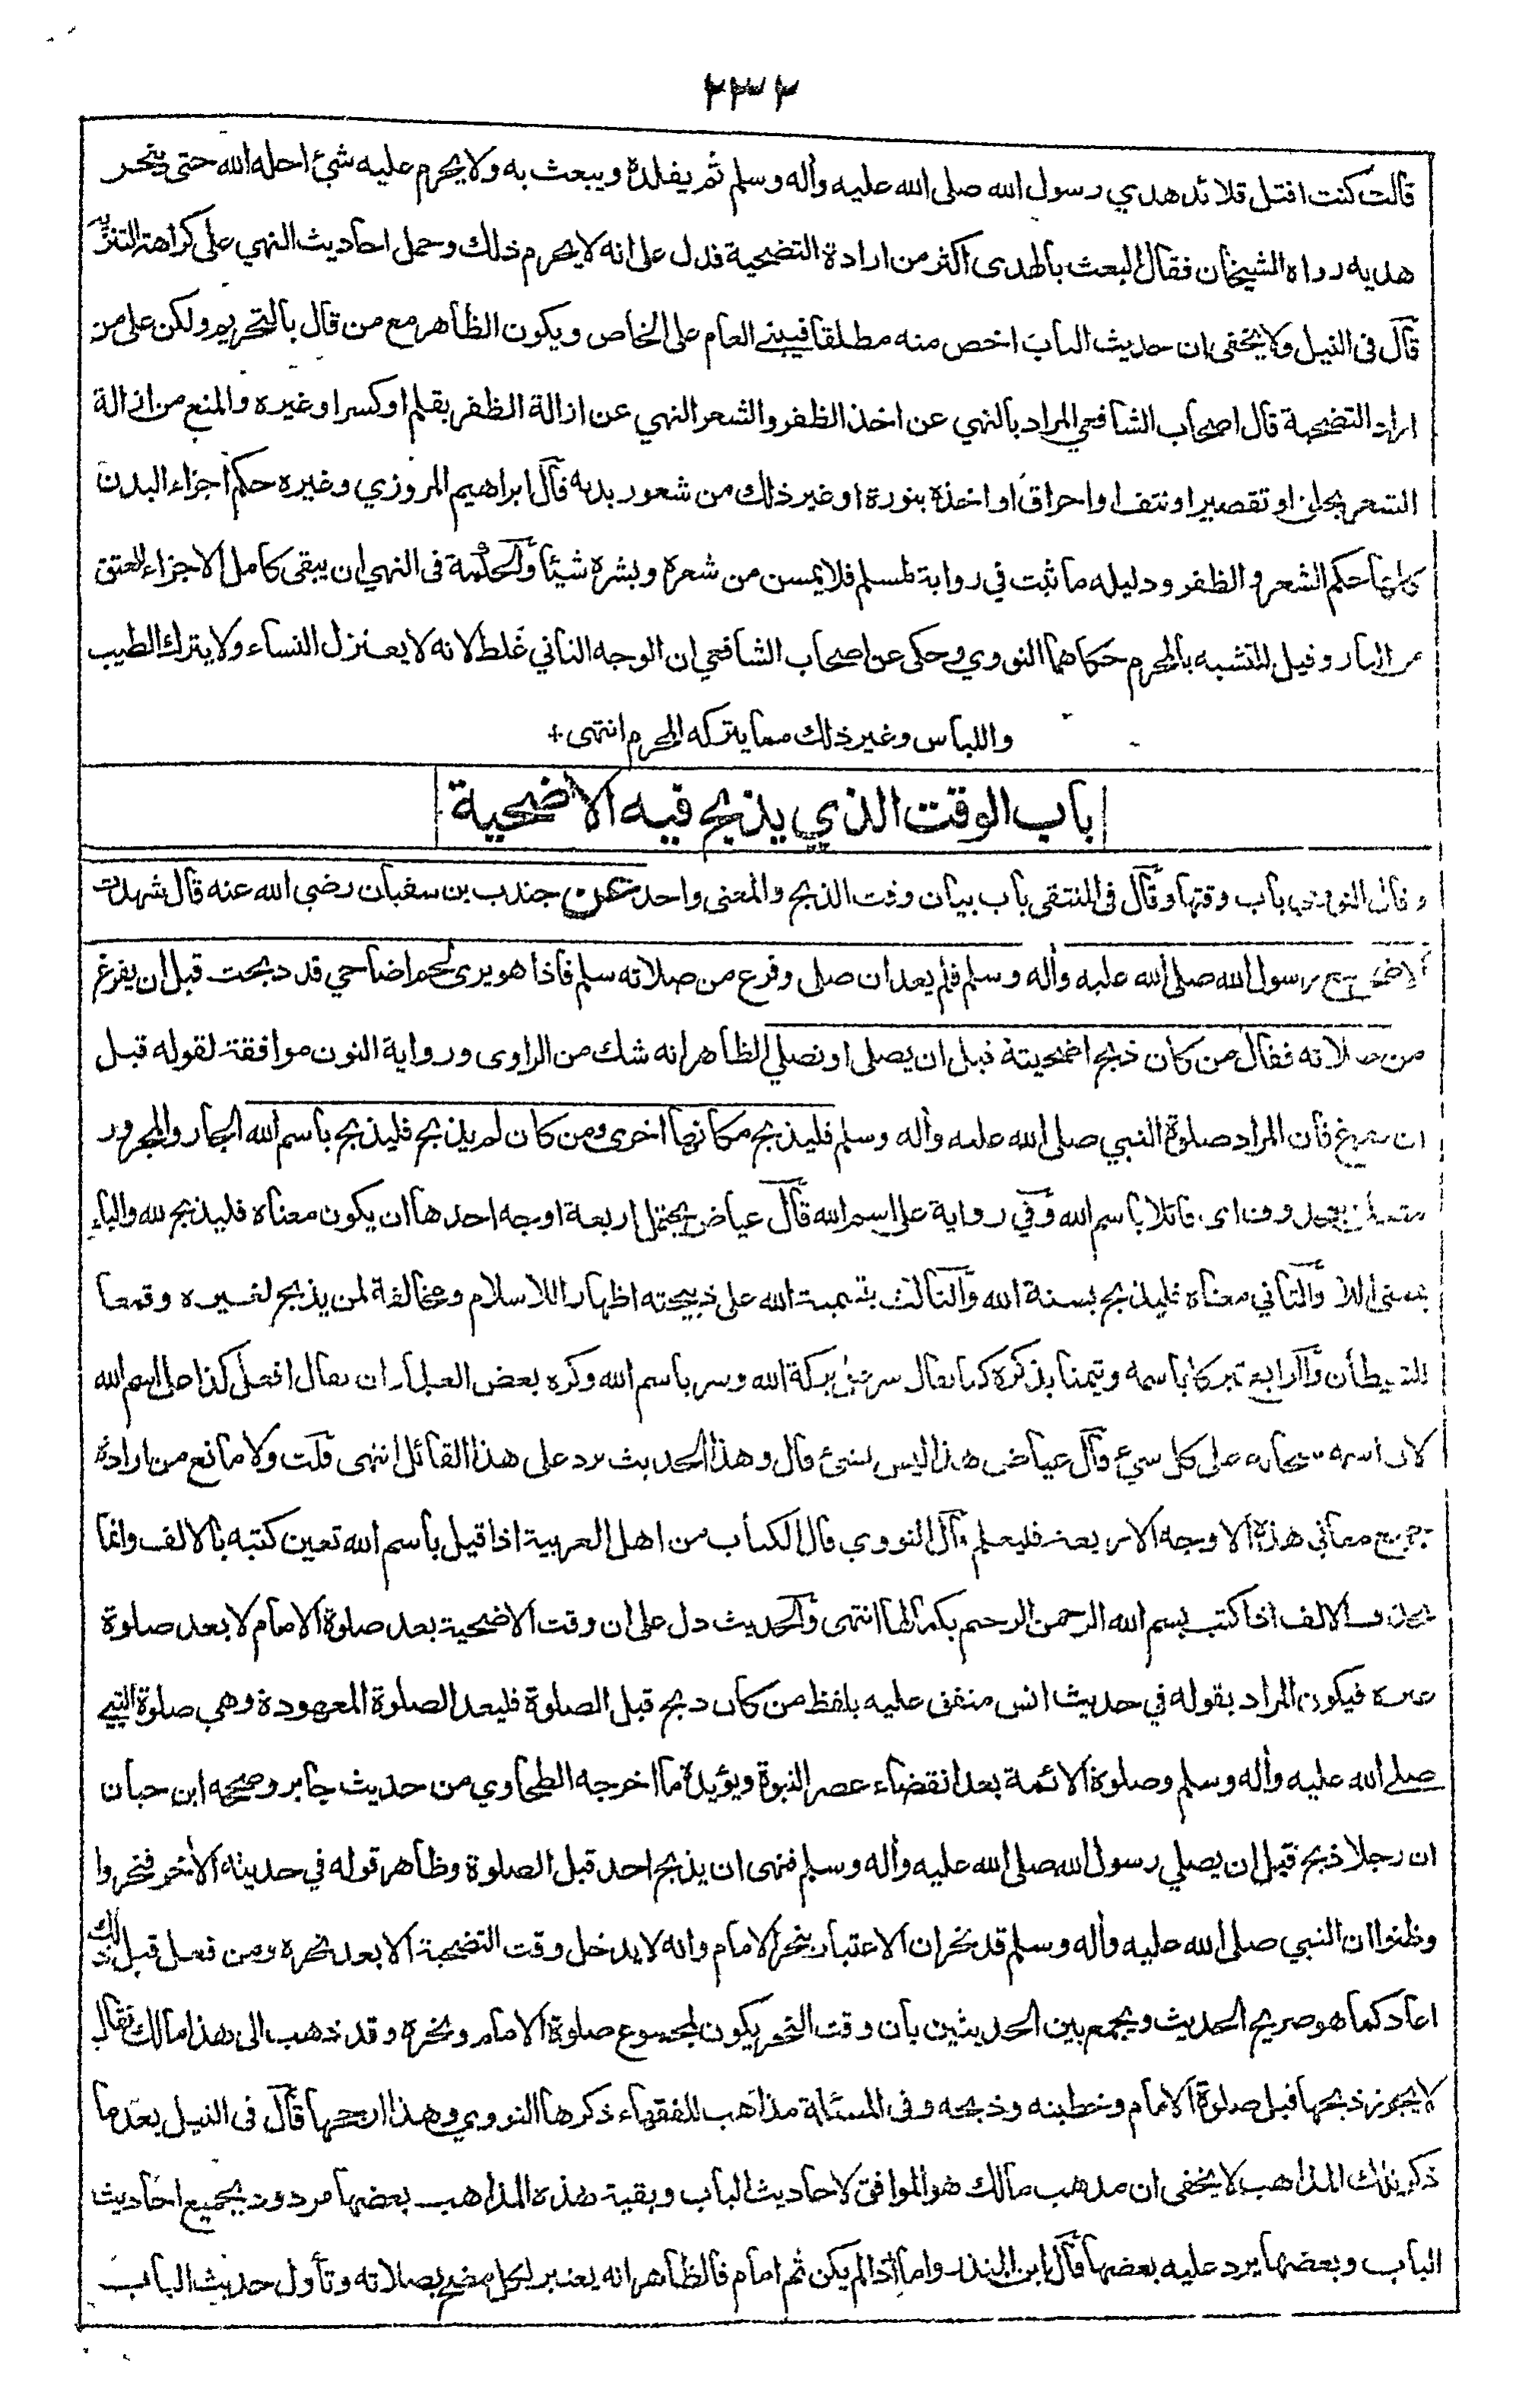 ٢٣٢
قالت كنت افتل قلائد هدي رسول الله صلى الله عليه وأله وسلم ثم يقلده ويبعث به ولا يحرم عليه شئ احله الله حتى ينحر
هديه رواه الشيخان فقال البعث بالهدى اكثر من ارادة التضحية فدل على انه لا يحرم ذلك وحمل احاديث النهي على كراهة التنزيه
قال فى النيل ولا يخفى ان حديث الباب اخص منه مطلقا فيبنى العام على الخاص ويكون الظاهر مع من قال بالتحريم ولكن على من
اراد التضحية قال اصحاب الشافعي المراد بالنهي عن اخذ الظفر والشعر النهي عن ازالة الظفر بقلم او كسر او غيره والمنع من ازالة
الشعر بحلق او تقصير او نتف او احراق او اخذه بنورة او غير ذلك من شعور بدنه قال ابراهيم المروزي وغيره حكم اجزاء البدن
كلها حكم الشعر والظفر ودليله ما ثبت في رواية لمسلم فلا يمسن من شعره وبشره شيئا والحكمة فى النهي ان يبقى كامل الاجزاء للعتق
من النار وقيل للتشبه بالمحرم حكاهما النووي وحكى عن اصحاب الشافعي ان الوجه الثاني غلط لانه لا يعتزل النساء ولا يترك الطيب
واللباس وغير ذلك مما يتركه المحرم انتهى +
باب الوقت الذي يذبح فيه الاضحية
وقال النووي باب وقتها وقال فى المنتقى باب بيان وقت الذبح والمعنى واحد عن جندب بن سفيان رضي الله عنه قال شهدت
الاضحى مع رسول الله صلى الله عليه وأله وسلم فلم يعد ان صلى وفرغ من صلاته سلم فاذا هو يرى لحم اضاحي قد ذبحت قبل ان يفرغ
من صلاته فقال من كان ذبح اضحيته قبل ان يصلي او نصلي الظاهر انه شك من الراوى ورواية النون موافقة لقوله قبل
ان يفرغ فان المراد صلوة النبي صلى الله عليه وأله وسلم فليذبح مكانها اخرى ومن كان لم يذبح فليذبح باسم الله الجار والمجرور
متعلق بمحذوف اى قائلا باسم الله وفي رواية على اسم الله قال عياض يحتمل اربعة اوجه احدها ان يكون معناه فليذبح لله والباء
بمعنى اللام والثاني معناه فليذبح بسنة الله والثالث بتسمية الله على ذبيحته اظهارا للاسلام ومخالفة لمن يذبح لغيره وقمعا
للشيطان والرابع تبركا باسمه وتيمنا بذكره كما يقال سر على بركة الله وسر باسم الله وكره بعض العلماء ان يقال افعل كذا على اسم الله
لان اسمه سبحانه على كل شئ قال عياض هذا ليس بشئ قال وهذا الحديث يرد على هذا القائل انتهى قلت ولا مانع من ارادة
جميع معاني هذه الاوجه الاربعة فليعلم قال النووي قال الكتاب من اهل العربية اذا قيل باسم الله تعين كتبه بالالف وانما
تحذف الالف اذا كتب بسم الله الرحمن الرحيم بكمالها انتهى والحديث دل على ان وقت الاضحية بعد صلوة الامام لا بعد صلوة
غيره فيكون المراد بقوله في حديث انس متفق عليه بلفظ من كان ذبح قبل الصلوة فليعد الصلوة المعهودة وهي صلوة النبي
صلى الله عليه وأله وسلم وصلوة الائمة بعد انقضاء عصر النبوة ويؤيده ما اخرجه الطحاوي من حديث جابر وصححه ابن حبان
ان رجلا ذبح قبل ان يصلي رسول الله صلى الله عليه وأله وسلم فنهى ان يذبح احد قبل الصلوة وظاهر قوله في حديثه الأخر فنحروا
وظنوا ان النبي صلى الله عليه وأله وسلم قد نحر ان الاعتبار بنحر الامام وانه لا يدخل وقت التضحية الا بعد نحره ومن فعل قبل ذلك
اعاد كما هو صريح الحديث ويجمع بين الحديثين بان وقت النحر يكون لمجموع صلوة الامام ونحره وقد ذهب الى هذا مالك فقال
لا يجوز ذبحها قبل صلوة الامام وخطبته وذبحه وفى المسئلة مذاهب للفقهاء ذكرها النووي وهذا ارجحها قال فى النيل بعد ما
ذكر تلك المذاهب لا يخفى ان مذهب مالك هو الموافق لاحاديث الباب وبقية هذه المذاهب بعضها مردود بجميع احاديث
الباب وبعضها يرد عليه بعضها قال ابن المنذر واما اذا لم يكن ثم امام فالظاهر انه يعتبر لكل مضح بصلاته وتأول حديث الباب